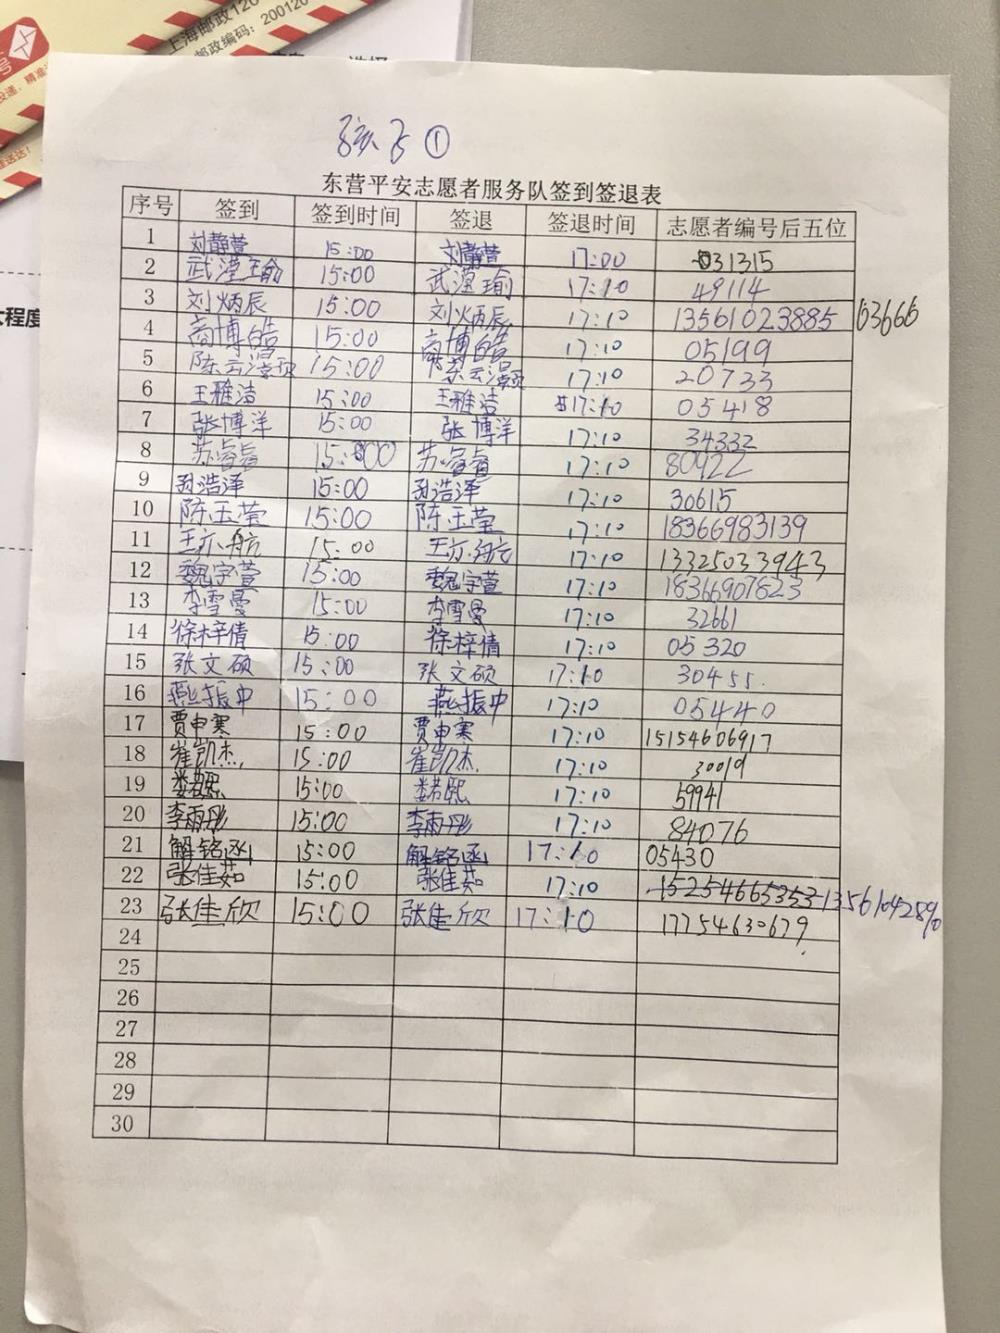 上海邮政120
邮政编码：200120
孩子①
东营平安志愿者服务队签到签退表
序号 签到 签到时间 签退 签退时间 志愿者编号后五位
1 刘静萱 15:00 刘静萱 17:00 31315
2 武滢瑜 15:00 武滢瑜 17:10 49114
3 刘炳辰 15:00 刘炳辰 17:10 13561023885 63666
4 商博皓 15:00 商博皓 17:10 05199
5 15:00 17:10 20733
6 王雅洁 15:00 王雅洁 17:10 05418
7 张博洋 15:00 张博洋 17:10 34332
8 苏睿睿 15:00 苏睿睿 17:10 80422
9 孙浩泽 15:00 孙浩泽 17:10 30615
10 陈玉莹 15:00 陈玉莹 17:10 18366983139
11 王亦航 15:00 王亦航 17:10 13325033943
12 魏宇萱 15:00 魏宇萱 17:10 18366907823
13 李雪曼 15:00 李雪曼 17:10 32661
14 徐梓倩 15:00 徐梓倩 17:10 05320
15 张文硕 15:00 张文硕 17:10 30455.
16 燕振中 15:00 燕振中 17:10 05440
17 贾申寒 15:00 贾申寒 17:10 15154606917
18 崔凯杰 15:00 崔凯杰 17:10 30019
19 娄若熙 15:00 娄若熙 17:10 59941
20 李雨彤 15:00 李雨彤 17:10 84076
21 解铭函 15:00 解铭函 17:10 05430
22 张佳茹 15:00 张佳茹 17:10 15254665353
23 张佳欣 15:00 张佳欣 17:10 17754630679
24
25
26
27
28
29
30